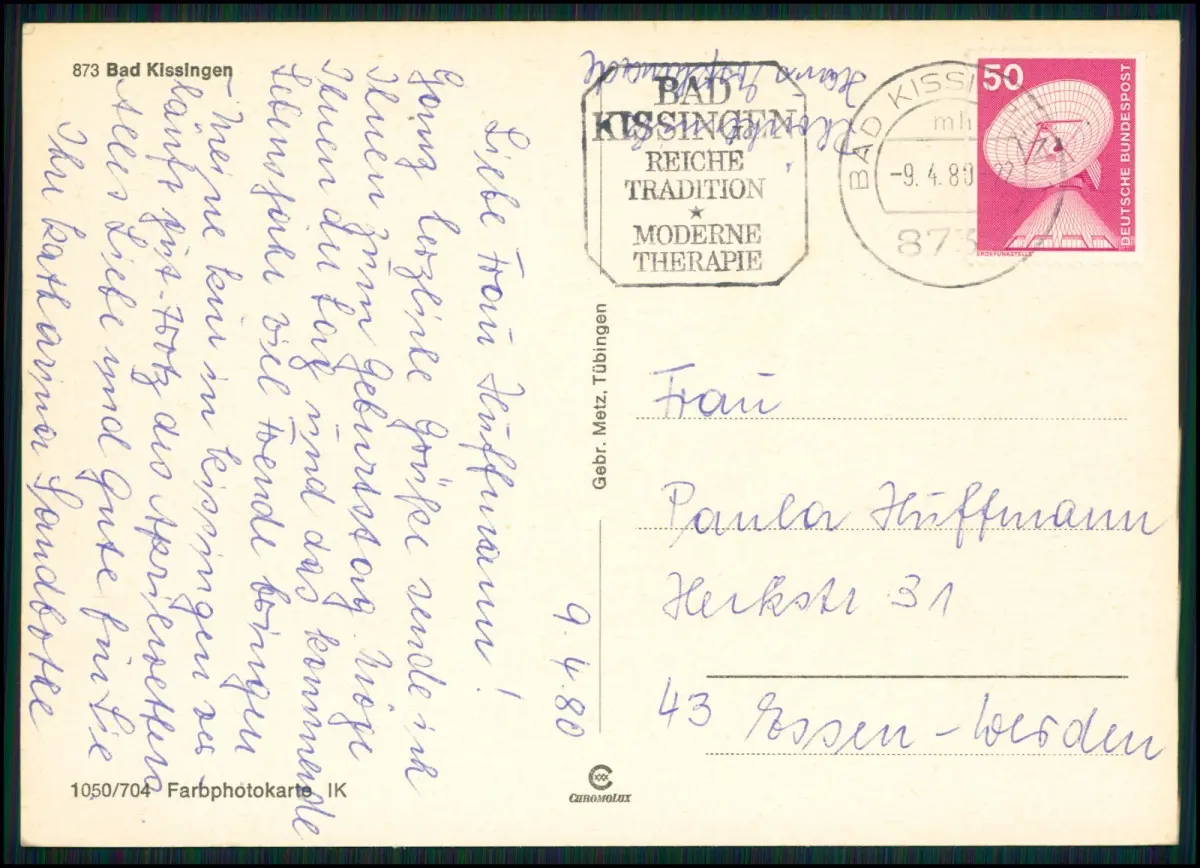 873 Bad Kissingen
9.4.80
Liebe Frau Hüffmann!
Ganz herzliche Grüße sende ich
Ihnen zum Geburtstag. Möge
Ihnen der Tag und das kommende
Lebensjahr viel Freude bringen
Meine Kur in Kissingen ver-
läuft gut - trotz des Aprilwetters
Alles Liebe und Gute für Sie
Ihre Katharina
1050/704 Farbphotokarte IK
Gebr. Metz, Tübingen
CHROMOLUX
BAD
KISSINGEN
REICHE
TRADITION
★
MODERNE
THERAPIE
BAD KISSIN
mh
-9.4.80-22
873
50
DEUTSCHE BUNDESPOST
ERDEFUNKSTELLE
Frau
Paula Hüffmann
Heckstr 31
43 Essen-Werden